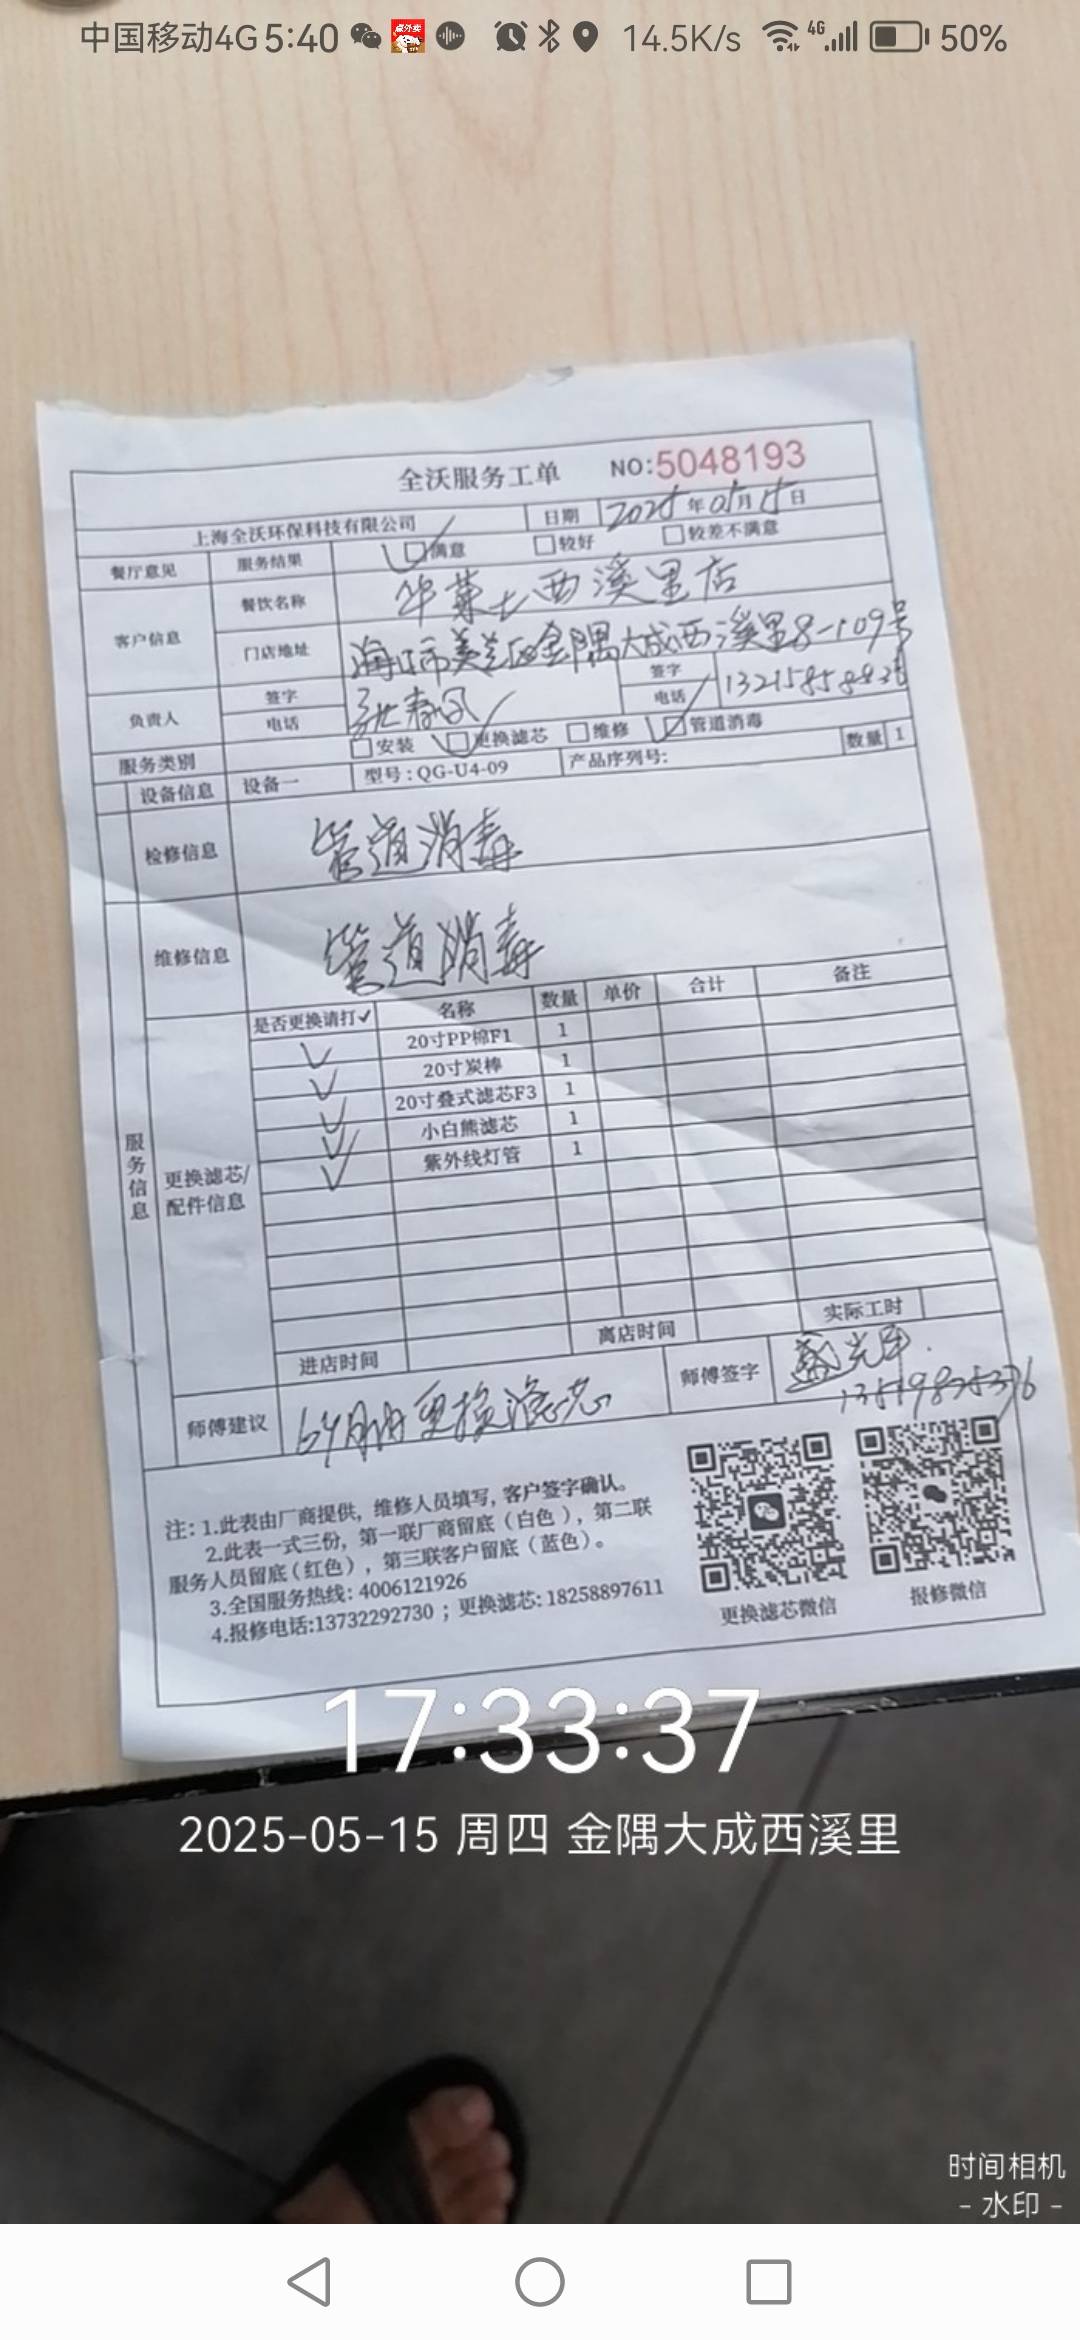 中国移动4G 5:40 14.5K/s 4G 50%
全沃服务工单 NO:5048193
上海全沃环保科技有限公司 日期 2025年05月15日
餐厅意见 服务结果 满意 较好 较差不满意
客户信息 餐饮名称 华莱士西溪里店
门店地址 海口市美兰区金隅大成西溪里8-109号
负责人 签字 签字
电话 电话
服务类别 安装 更换滤芯 维修 管道消毒
设备信息 设备一 型号:QG-U4-09 产品序列号: 数量 1
检修信息 管道消毒
维修信息 管道消毒
服务信息
更换滤芯/配件信息
是否更换请打✓ 名称 数量 单价 合计 备注
✓ 20寸PP棉F1 1
✓ 20寸炭棒 1
✓ 20寸叠式滤芯F3 1
✓ 小白熊滤芯 1
✓ 紫外线灯管 1
进店时间 离店时间 实际工时
师傅建议 6个月内更换滤芯 师傅签字
注: 1.此表由厂商提供，维修人员填写, 客户签字确认。
2.此表一式三份，第一联厂商留底（白色），第二联
服务人员留底（红色），第三联客户留底（蓝色）。
3.全国服务热线: 4006121926
4.报修电话:13732292730；更换滤芯: 18258897611
更换滤芯微信 报修微信
17:33:37
2025-05-15 周四 金隅大成西溪里
时间相机
- 水印 -